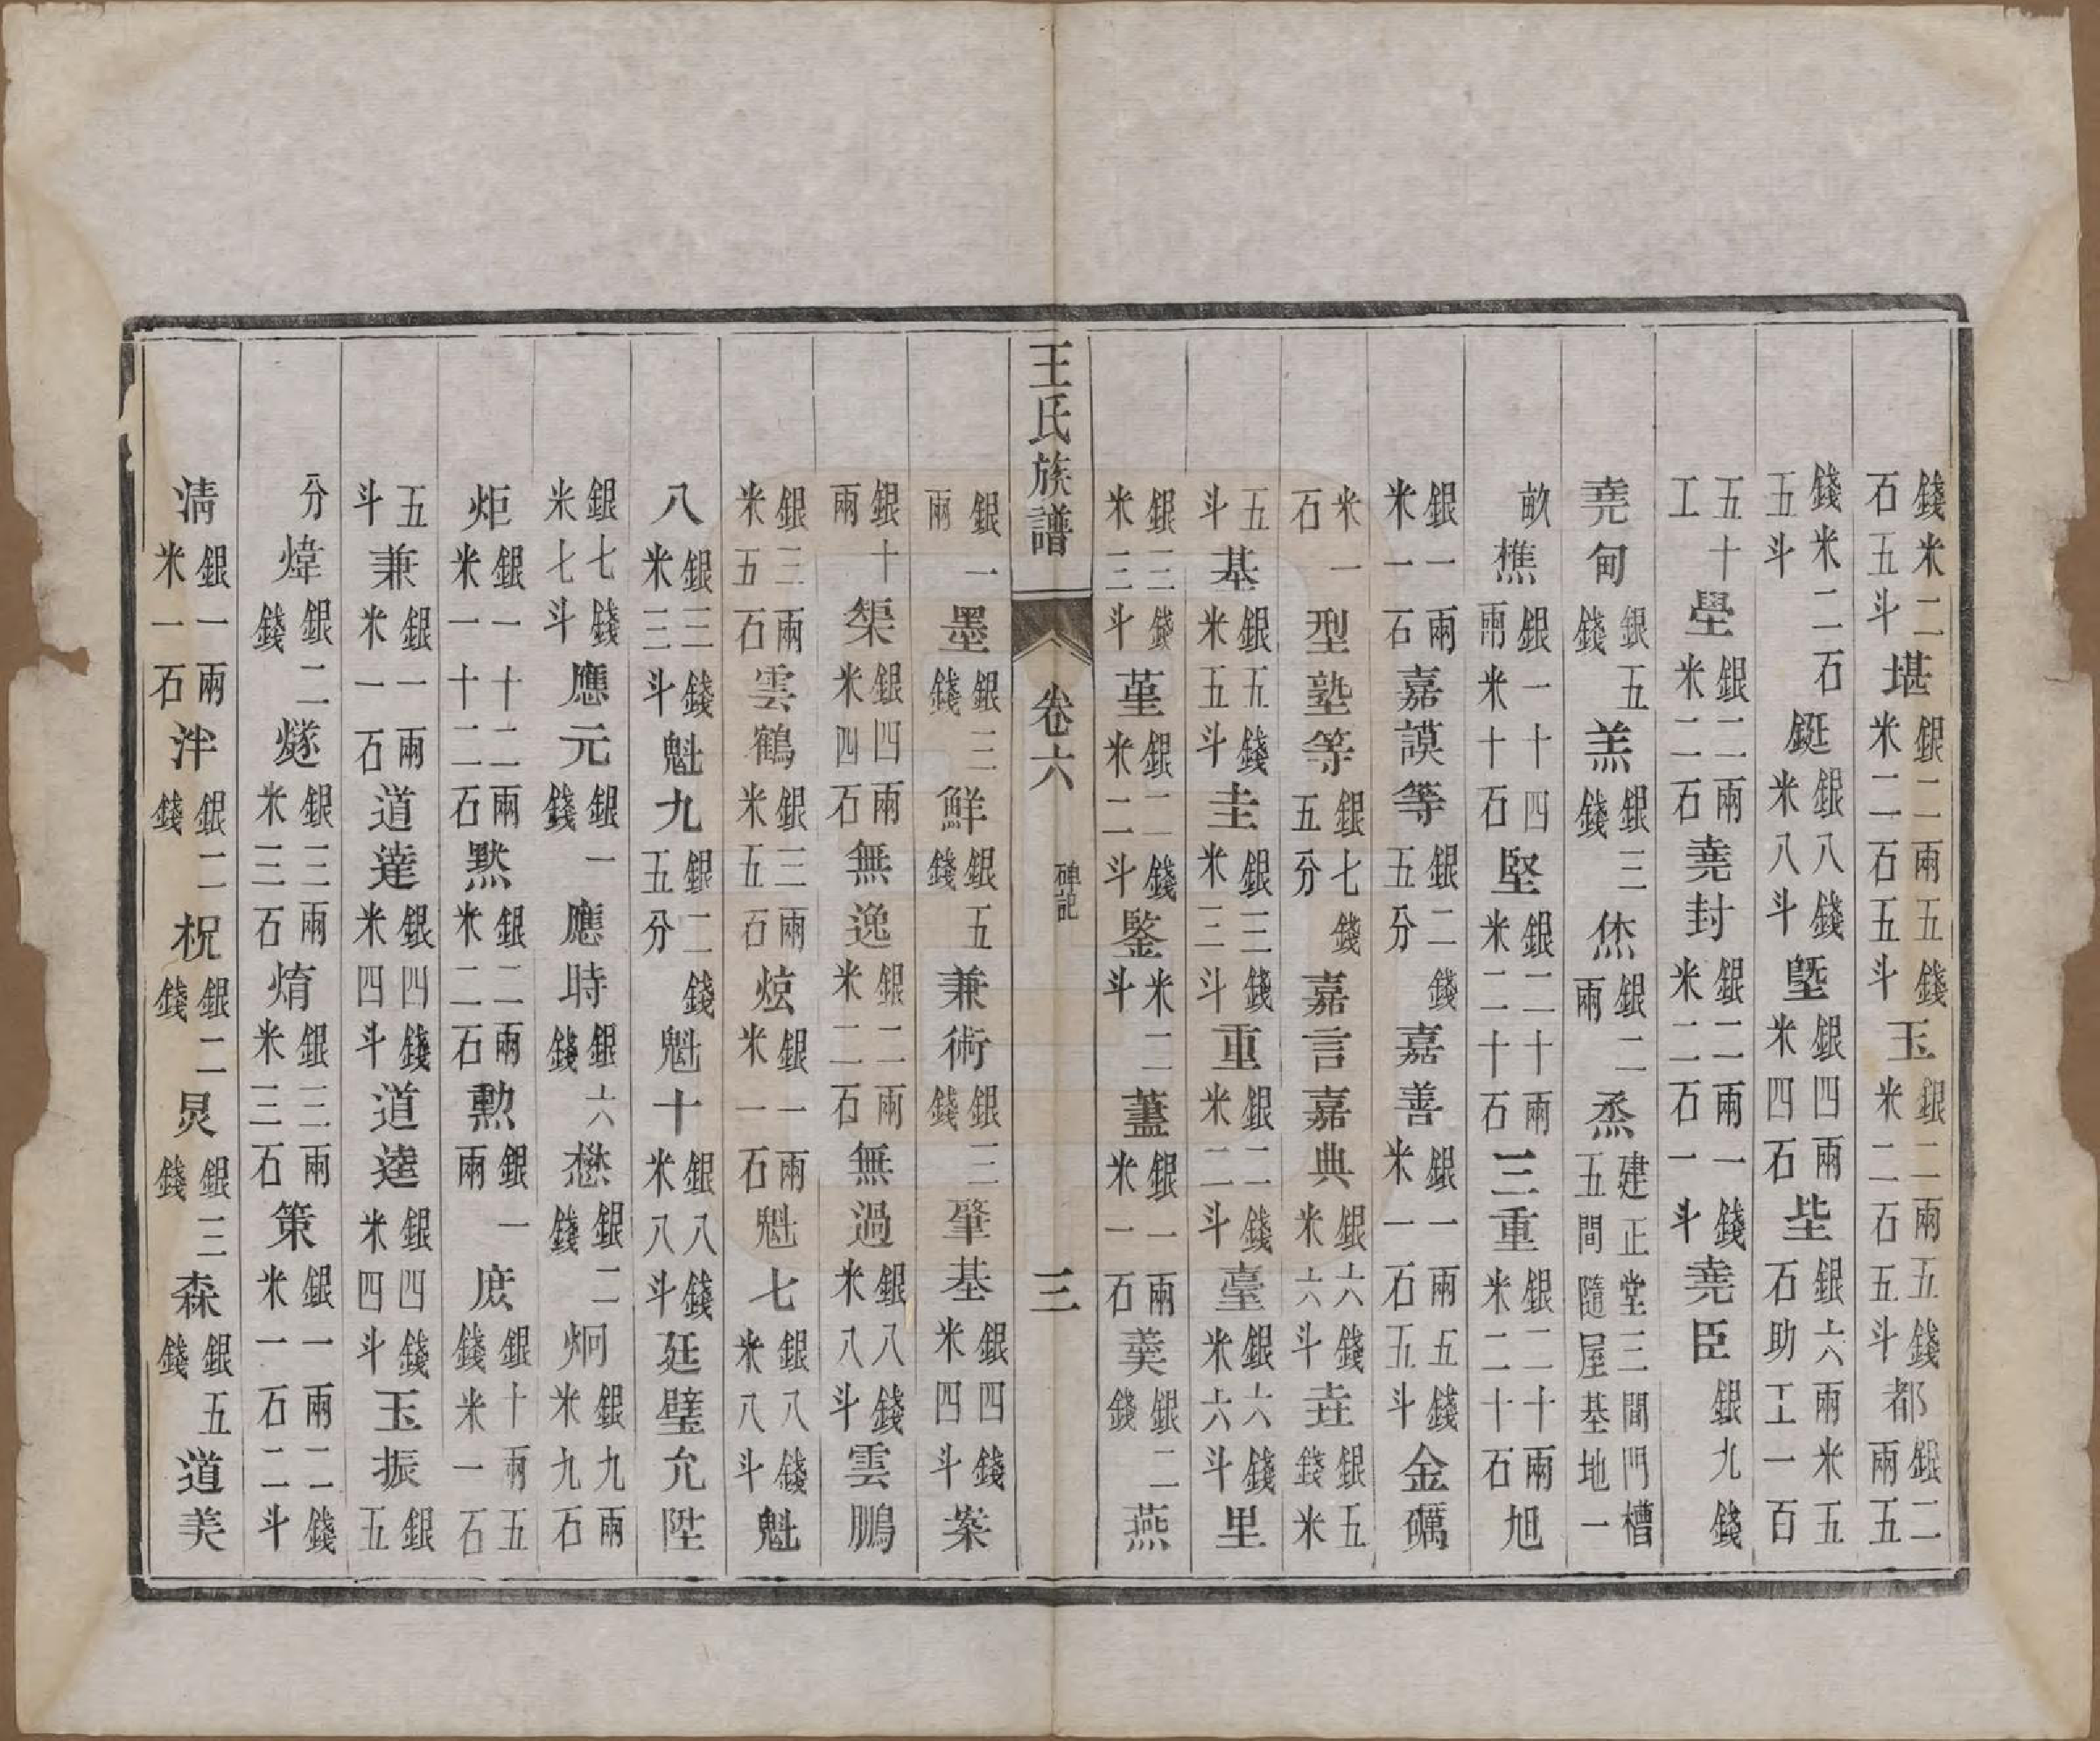 錢米二石五斗堪銀二兩五錢米二石五斗玉銀二兩五錢米二石五斗都銀二兩五
錢米二石五斗鋋銀八錢米八斗塈銀四兩米四石坒銀六兩米五石助工一百
五十工壆銀二兩米二石堯封銀二兩一錢米二石一斗堯臣銀九錢
堯甸銀五錢羔銀三錢烋銀二兩烝建正堂三間門槽五間隨屋基地一
畝樵銀一十四兩米十石堅銀二十兩米二十石三重銀二十兩米二十石旭
銀一兩米一石嘉謨等銀二錢五分嘉善銀一兩五錢米一石五斗金礪
米一石型塾等銀七錢五分嘉言嘉典銀六錢米六斗垚銀五錢米
五斗基銀五錢米五斗圭銀三錢米三斗重銀二錢米二斗臺銀六錢米六斗里
銀三錢米三斗堇銀二錢米二斗鋻米二斗藎銀一兩米一石羹銀二錢燕
王氏族譜 卷六 碑記 三
銀一兩墨銀三錢鮮銀五錢兼術銀三錢肇基銀四錢米四斗案
銀十兩榘銀四兩米四石無逸銀二兩米二石無過銀八錢米八斗雲鵬
銀三兩米五石雲鶴銀三兩米五石炫銀一兩米一石魁七銀八錢米八斗魁
八銀三錢米三斗魁九銀二錢五分魁十銀八錢米八斗廷璧允陞
銀七錢米七斗應元銀一錢應時銀六錢懋銀二錢炯銀九兩米九石
炬銀一十二兩米一十二石黙銀二兩米二石勲銀一兩庶銀十兩五錢米一石
五斗兼銀一兩米一石道達銀四錢米四斗道逵銀四錢米四斗玉振銀五
分煒銀二錢燧銀三兩米三石焴銀三兩米三石策銀一兩二錢米一石二斗
淸銀一兩米一石泮銀二錢柷銀二錢炅銀三錢森銀五錢道美